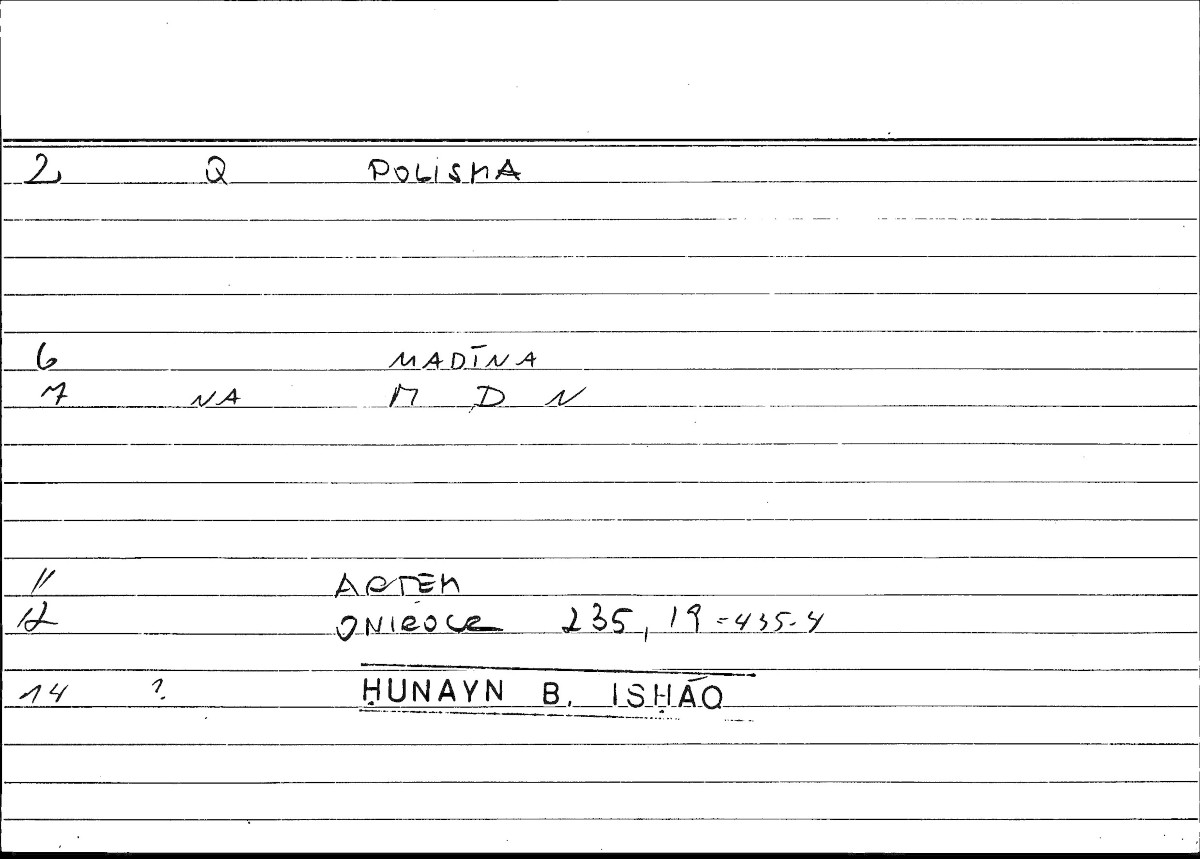 2 Q POLISMA
6 MADĪNA
7 NA M D N
11 ARTEM
12 ONIROCR 235, 19 = 435-4
14 ? ḤUNAYN B. ISḤĀQ